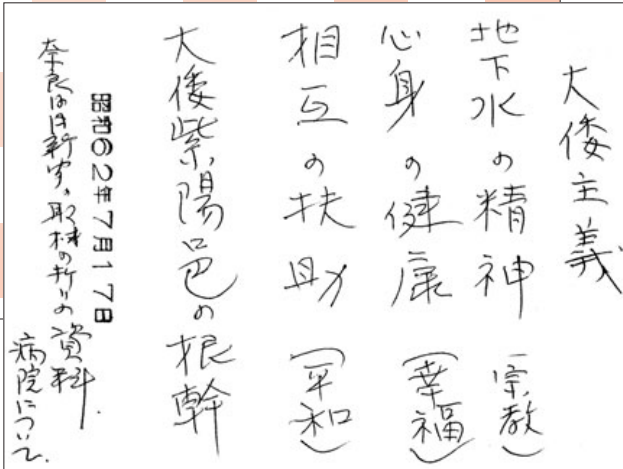 大倭主義
地下水の精神（宗教）
心身の健康（幸福）
相互の扶助（平和）
大倭紫陽邑の根幹
昭和62年7月17日
奈良は日新聞の取材の折りの資料.
病院について.